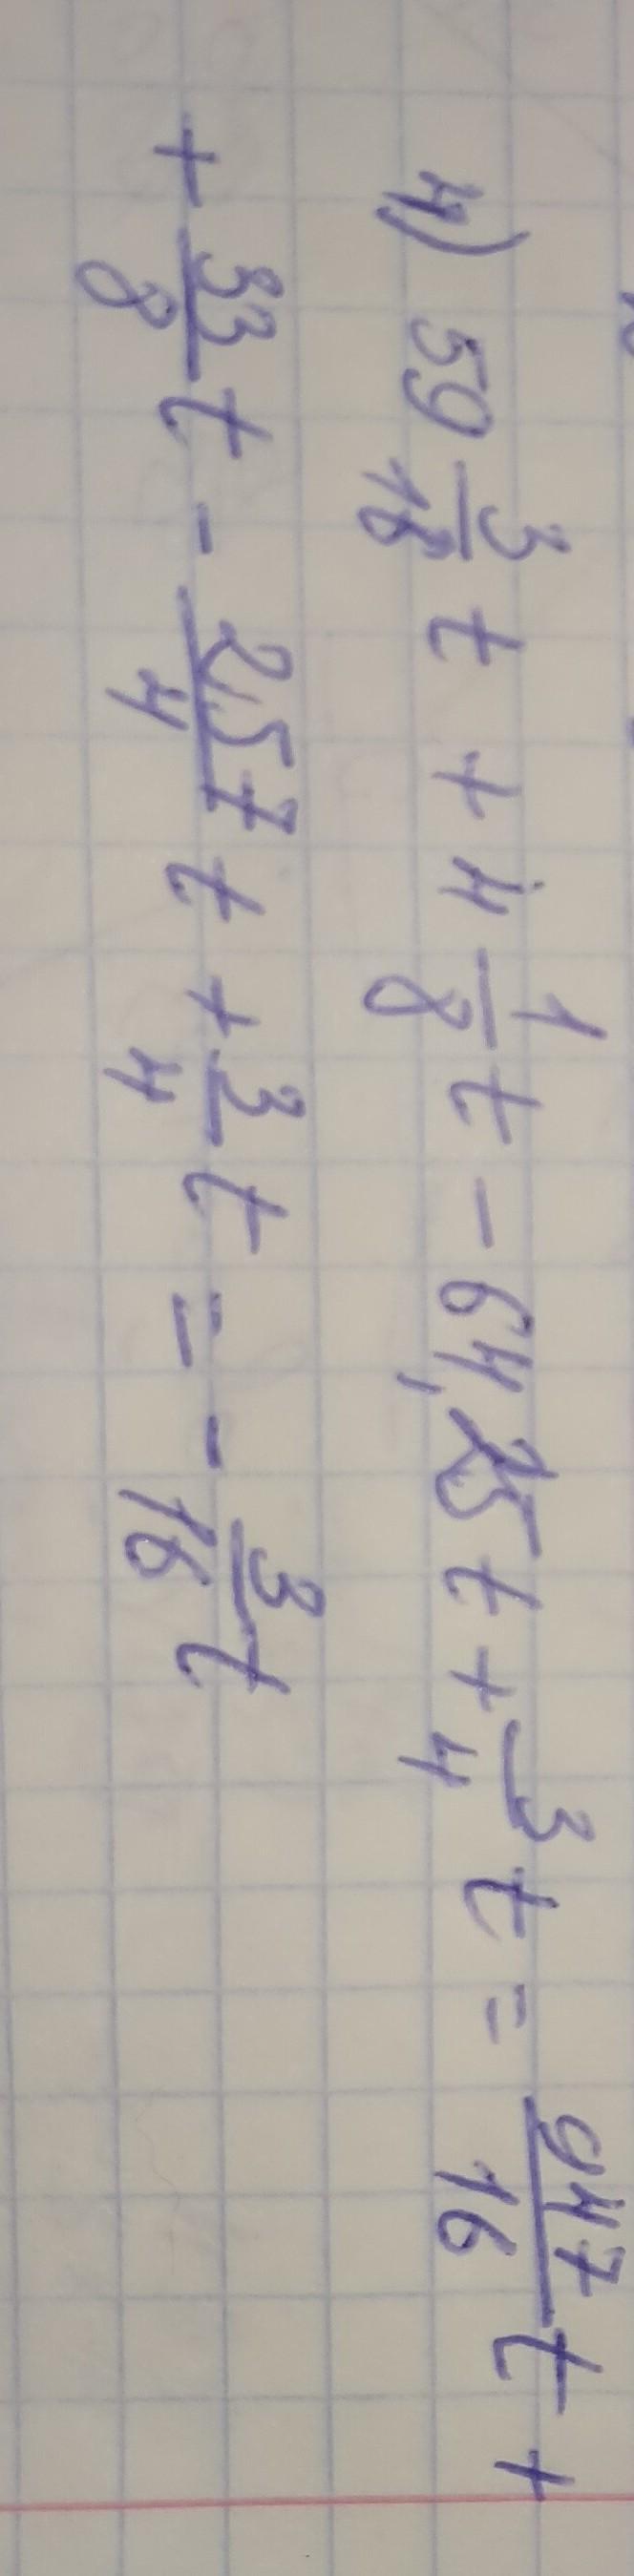 4) 59 3/16 t + 4 1/8 t - 64,25 t + 3/4 t = 947/16 t +
+ 33/8 t - 257/4 t + 3/4 t = - 3/16 t